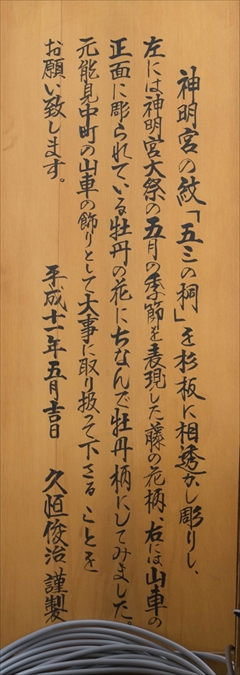 神明宮の紋「五三の桐」を杉板に相透かし彫りし、
左には神明宮大祭の五月の季節を表現した藤の花柄、右には山車の
正面に彫られている牡丹の花にちなんで牡丹柄にしてみました。
元能見中町の山車の飾りとして大事に取り扱って下さることを
お願い致します。
平成十一年五月吉日 久恒俊治 謹製